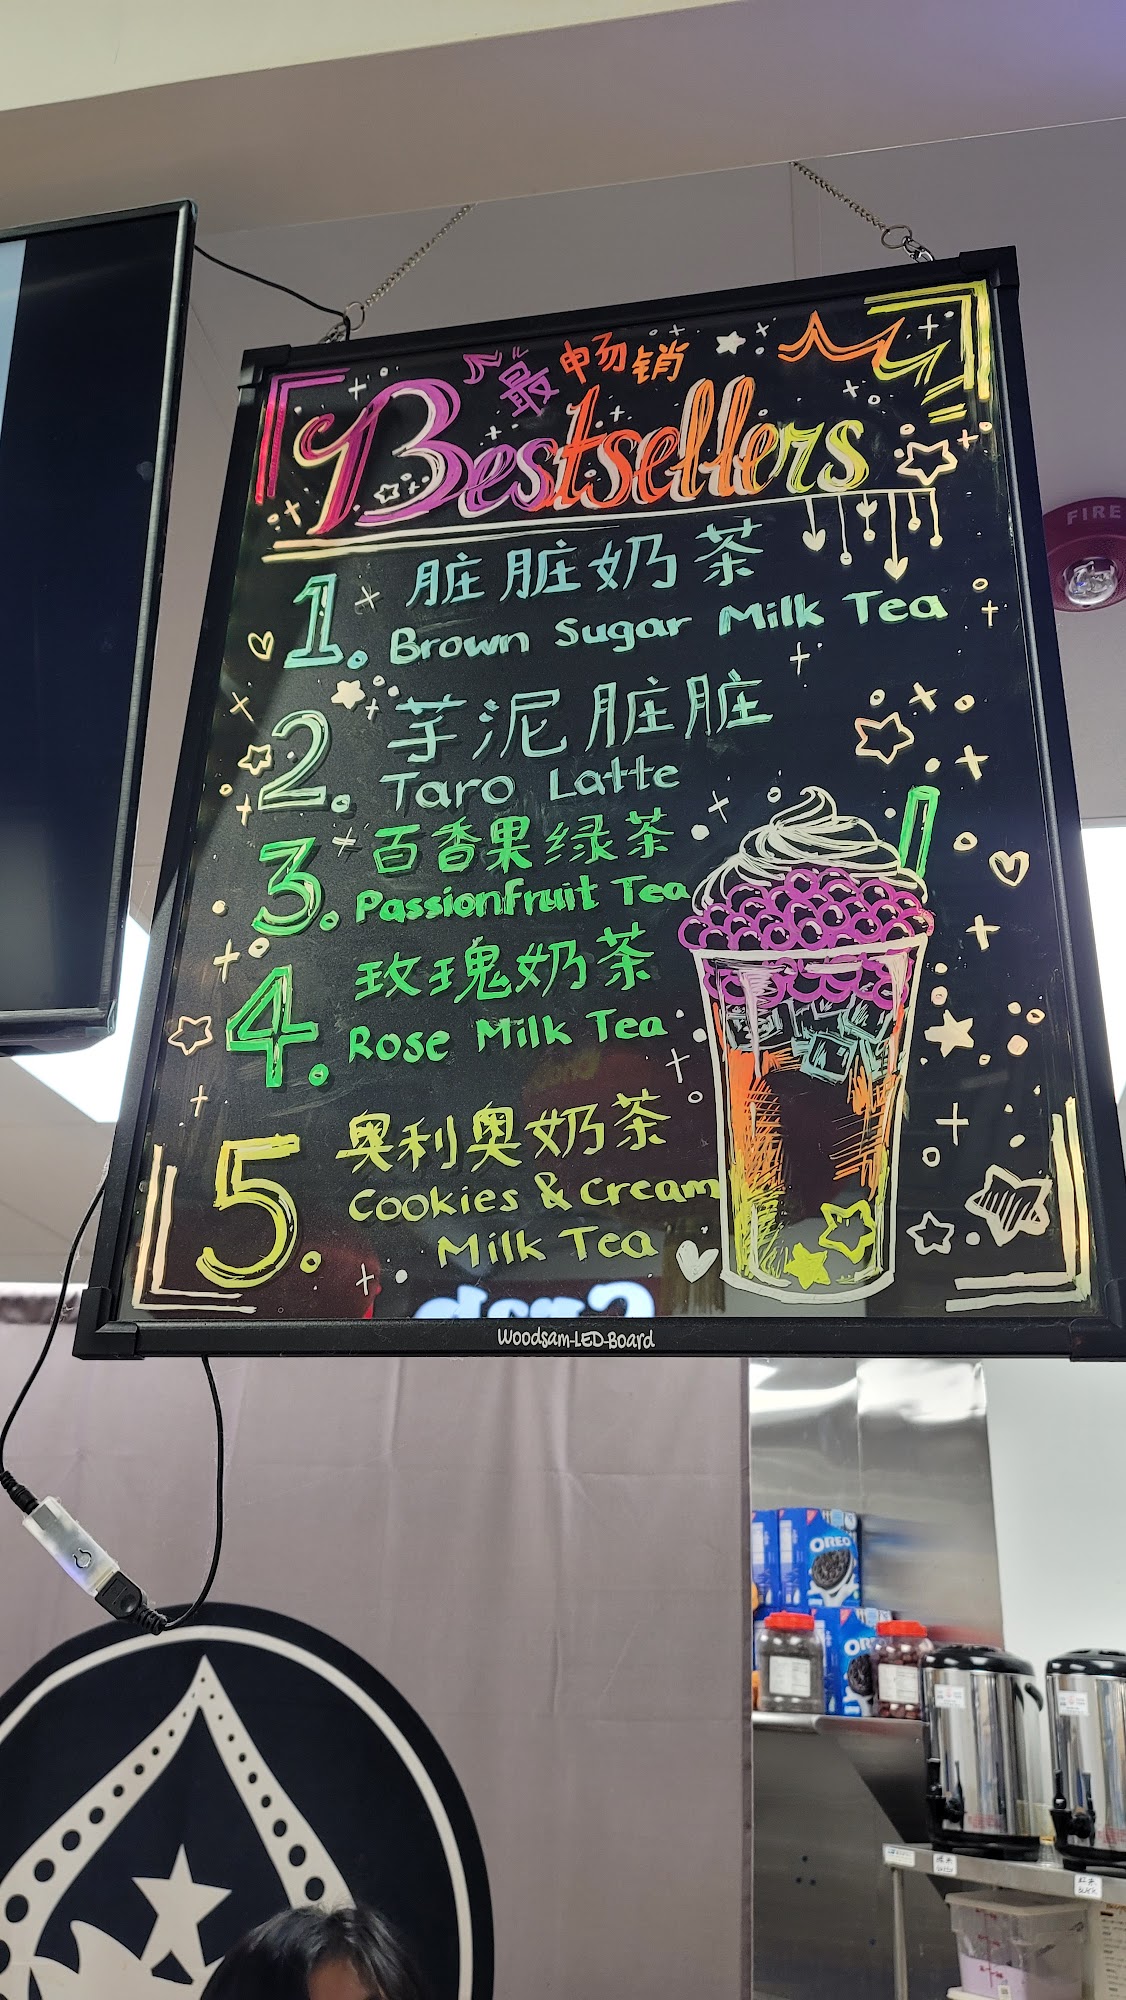 最畅销
Bestsellers
1. 脏脏奶茶
Brown Sugar Milk Tea
2. 芋泥脏脏
Taro Latte
3. 百香果绿茶
Passionfruit Tea
4. 玫瑰奶茶
Rose Milk Tea
5. 奥利奥奶茶
Cookies & Cream
Milk Tea
Woodsam-LED-Board
FIRE
OREO